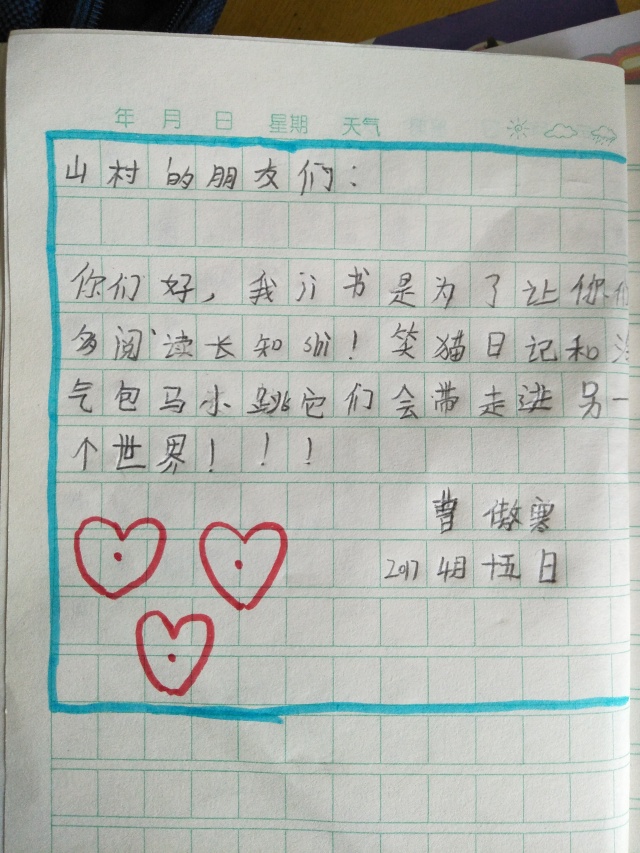 年 月 日 星期 天气
山村的朋友们：
你们好，我订书是为了让你们
多阅读长知shi！笑猫日记和淘
气包马小跳它们会带走进另一
个世界！！！
曹傲寒
2017 4月十五日